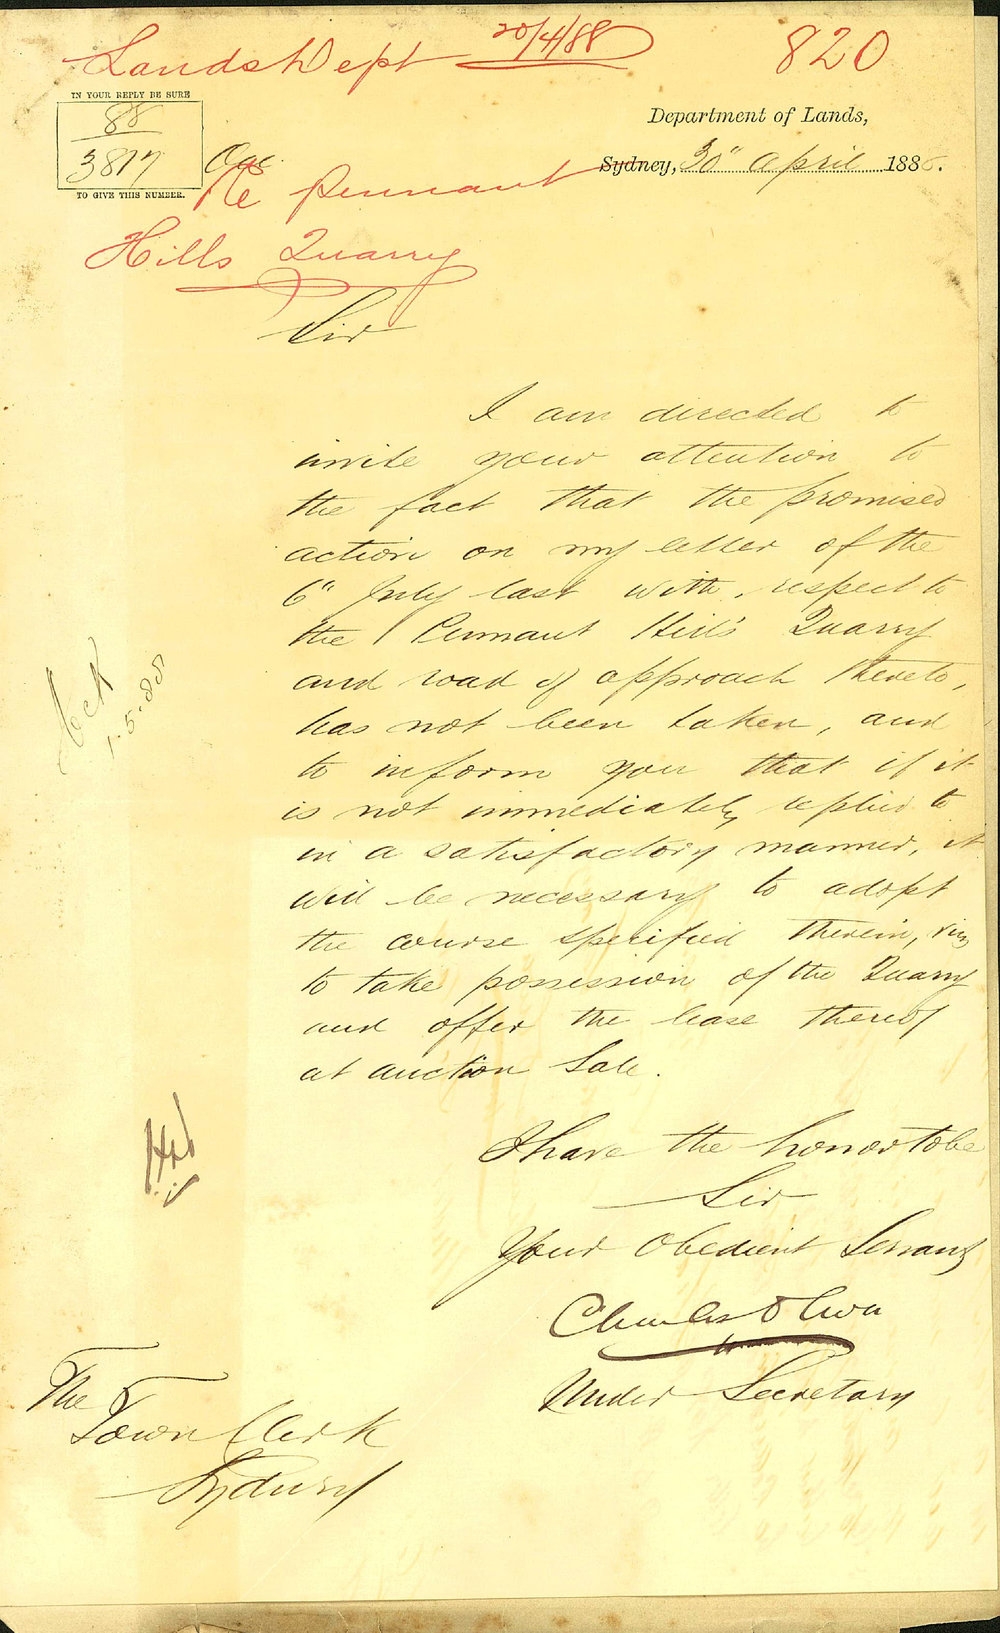 Lands Dept 20/4/88
820
IN YOUR REPLY BE SURE
88
3817
TO GIVE THIS NUMBER.
Department of Lands,
Sydney, 30" April 1888.
Re Pennant
Hills Quarry
Sir
I am directed to
invite your attention to
the fact that the promised
action on my letter of the
6" July last with respect to
the Pennant Hills Quarry
and road of approach thereto,
has not been taken, and
to inform you that if it
is not immediately replied to
in a satisfactory manner, it
will be necessary to adopt
the course specified therein, viz
to take possession of the Quarry
and offer the lease thereof
at auction Sale.
I have the honor to be
Sir
Your Obedient Servant
Charles Oliver
Under Secretary
The
Town Clerk
Sydney
1.5.88